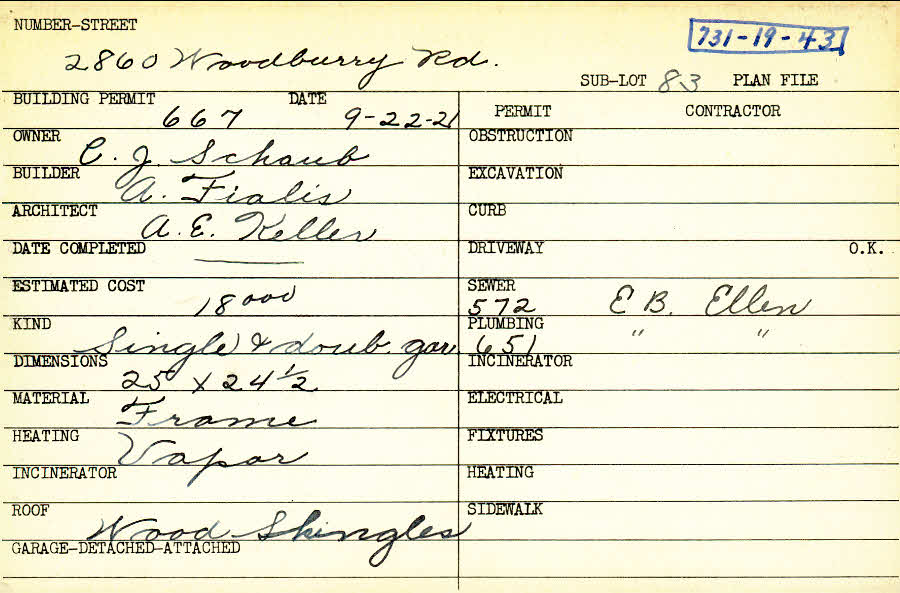 NUMBER-STREET
731-19-43
2860 Woodburry Rd.
SUB-LOT 83 PLAN FILE
BUILDING PERMIT 667 DATE 9-22-21
PERMIT CONTRACTOR
OWNER C. J. Schaub
OBSTRUCTION
BUILDER A. Fialis
EXCAVATION
ARCHITECT A. E. Keller
CURB
DATE COMPLETED
DRIVEWAY O.K.
ESTIMATED COST 18000
SEWER 572 E B. Ellen
KIND Single & doub. gar.
PLUMBING 651 " "
DIMENSIONS 25 x 24 1/2
INCINERATOR
MATERIAL Frame
ELECTRICAL
HEATING Vapor
FIXTURES
INCINERATOR
HEATING
ROOF Wood Shingles
SIDEWALK
GARAGE-DETACHED-ATTACHED